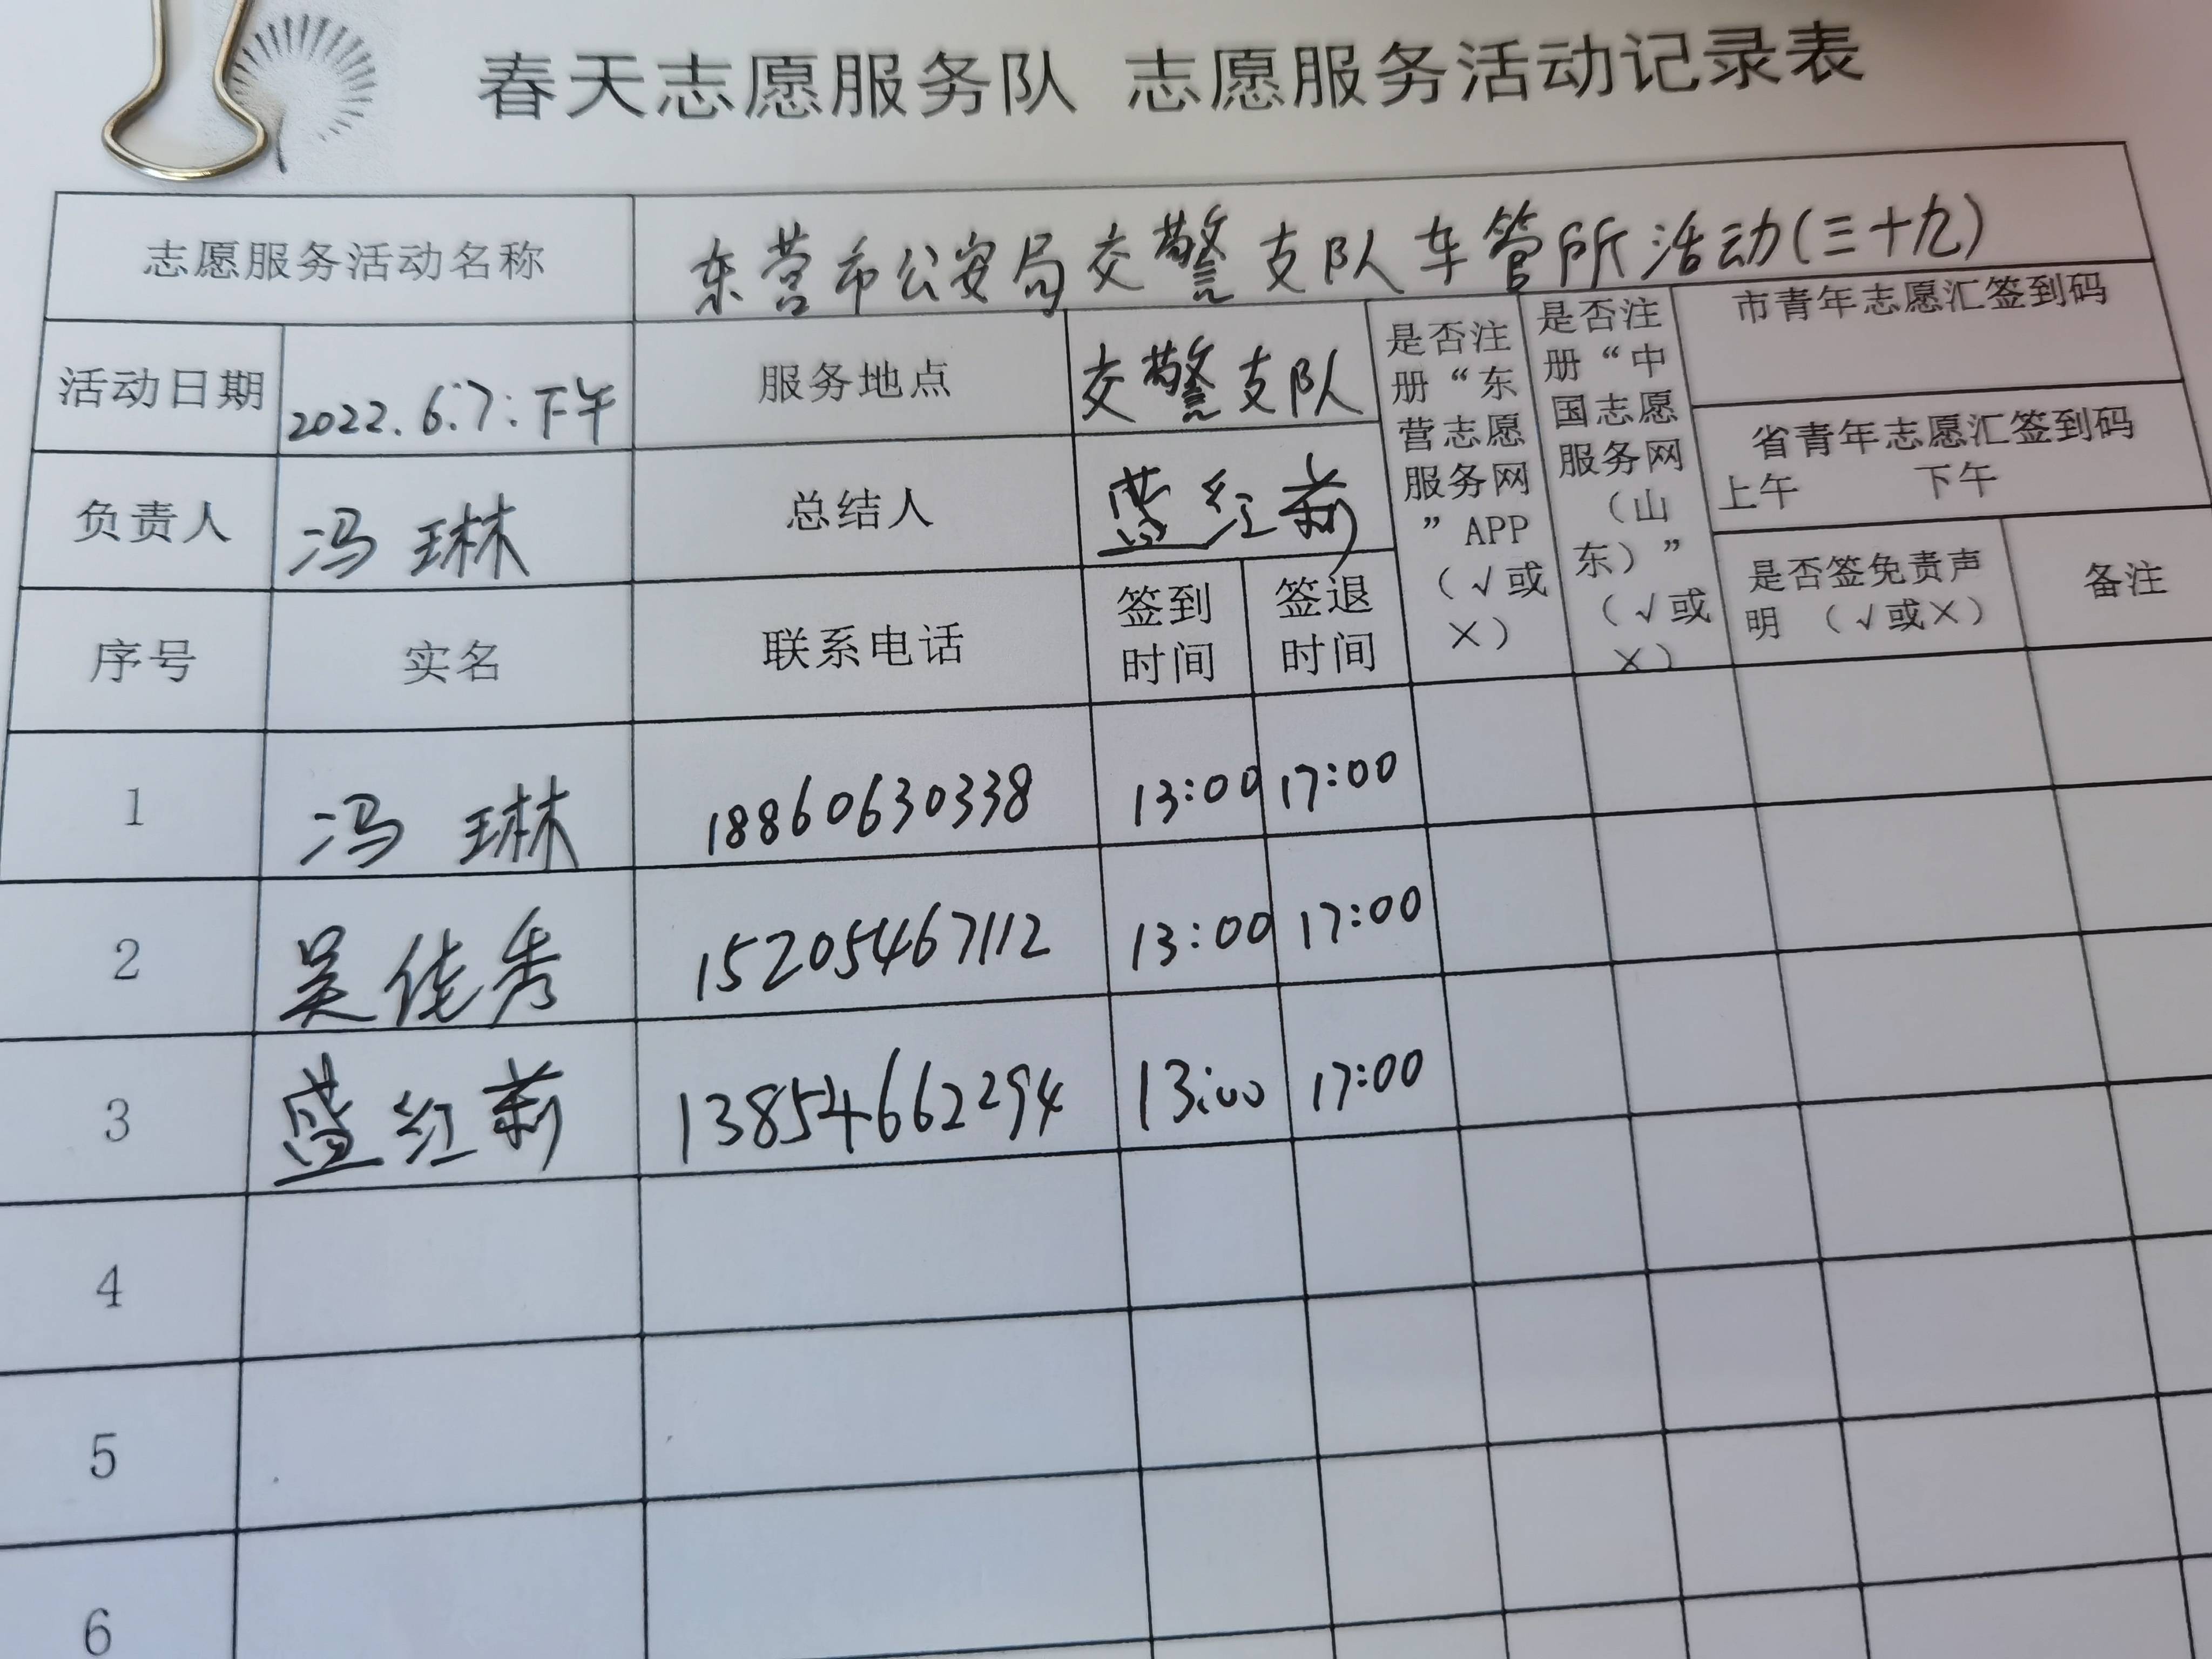 春天志愿服务队 志愿服务活动记录表
志愿服务活动名称 东营市公安局交警支队车管所活动(三十九)
活动日期 2022.6.7:下午 服务地点 交警支队
是否注册“东营志愿服务网”APP（√或×）
是否注册“中国志愿服务网（山东）”（√或×）
市青年志愿汇签到码
省青年志愿汇签到码
上午 下午
负责人 冯琳 总结人 盛红莉
是否签免责声明 （√或×） 备注
序号 实名 联系电话 签到时间 签退时间
1 冯琳 18860630338 13:00 17:00
2 吴佳秀 15205467112 13:00 17:00
3 盛红莉 13854662294 13:00 17:00
4
5
6